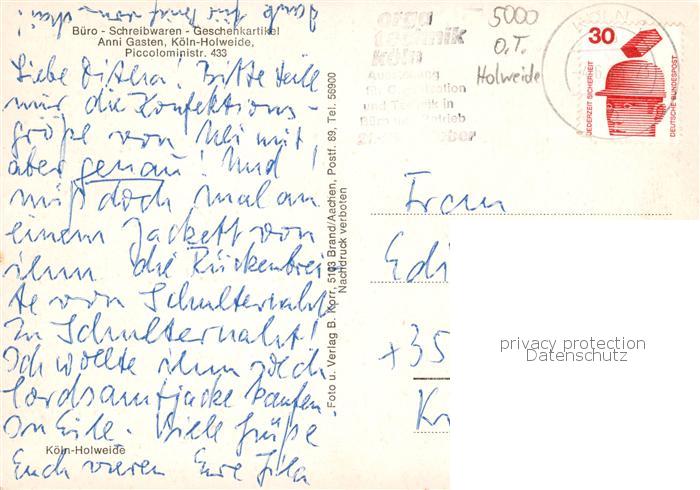 Danke für Brief von
Büro - Schreibwaren - Geschenkartikel
Anni Gasten, Köln-Holweide,
Piccoloministr. 433
Liebe Bitte teile
mir die Konfektions-
größe von mit,
aber genau! Und
miß doch mal an
einem Jackett von
ihm die Rückenbrei
te von Schulternaht
zu Schulternaht!
Ich wollte ihm
Cordsamtjacke kaufen.
In Eile. Viele Grüße
Euch Eure
Köln-Holweide
Foto u. Verlag B. Korr, 5103 Brand/Aachen, Postf. 89, Tel. 56900
Nachdruck verboten
orga
technik
köln
und Technik in
5000
O.T.
Holweide
30
JEDERZEIT SICHERHEIT
DEUTSCHE BUNDESPOST
Frau
Edi
+35
K
privacy protection
Datenschutz